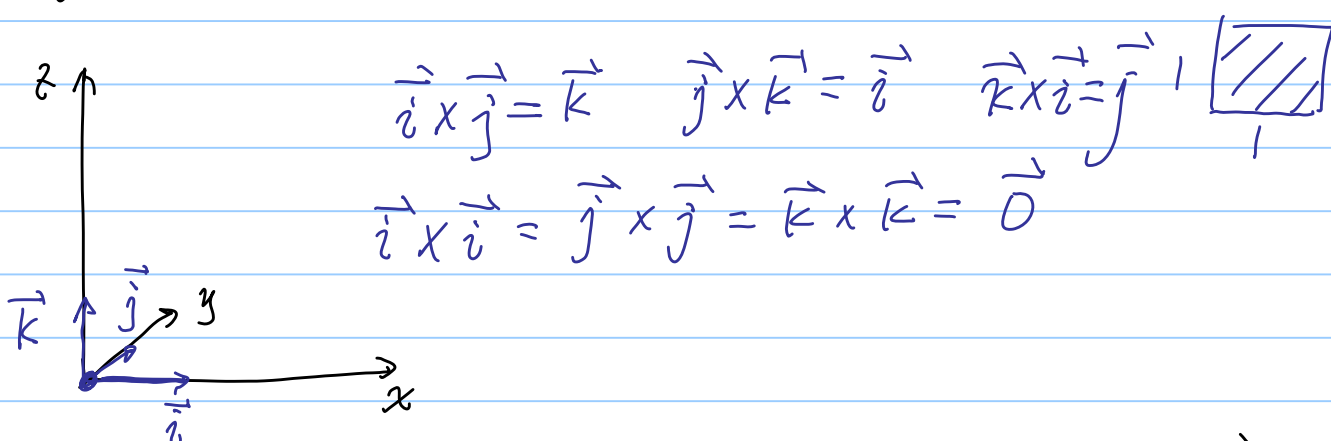 z
i⃗ × j⃗ = k⃗ j⃗ × k⃗ = i⃗ k⃗ × i⃗ = j⃗ 1
1
i⃗ × i⃗ = j⃗ × j⃗ = k⃗ × k⃗ = 0⃗
k⃗ j⃗ y
x
i⃗